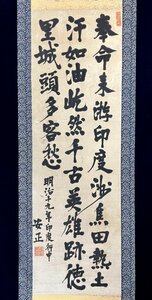 奉命来游印度涉焦田熱土
汗如油屹然千古英雄跡徳
里城頭多客愁
明治十九年印度行中
安正